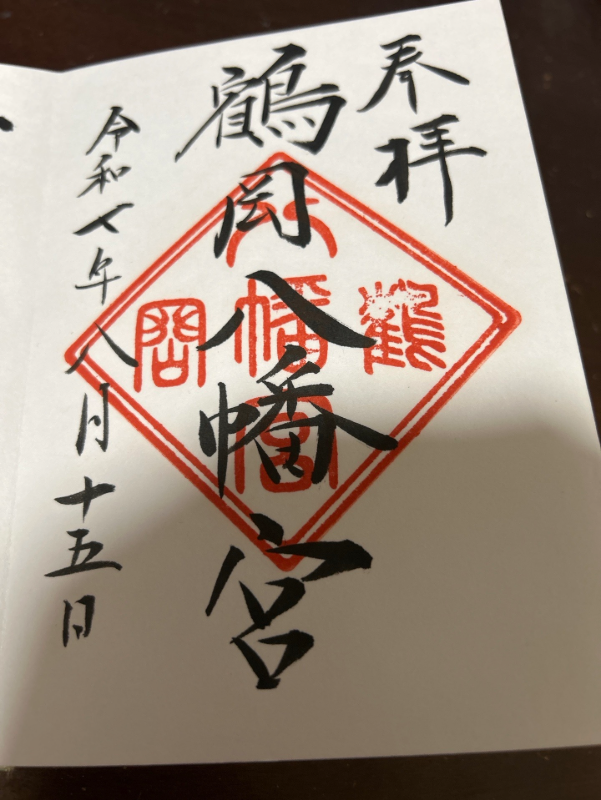 奉拝
鶴岡八幡宮
鶴
八幡宮
岡
令和七年八月十五日